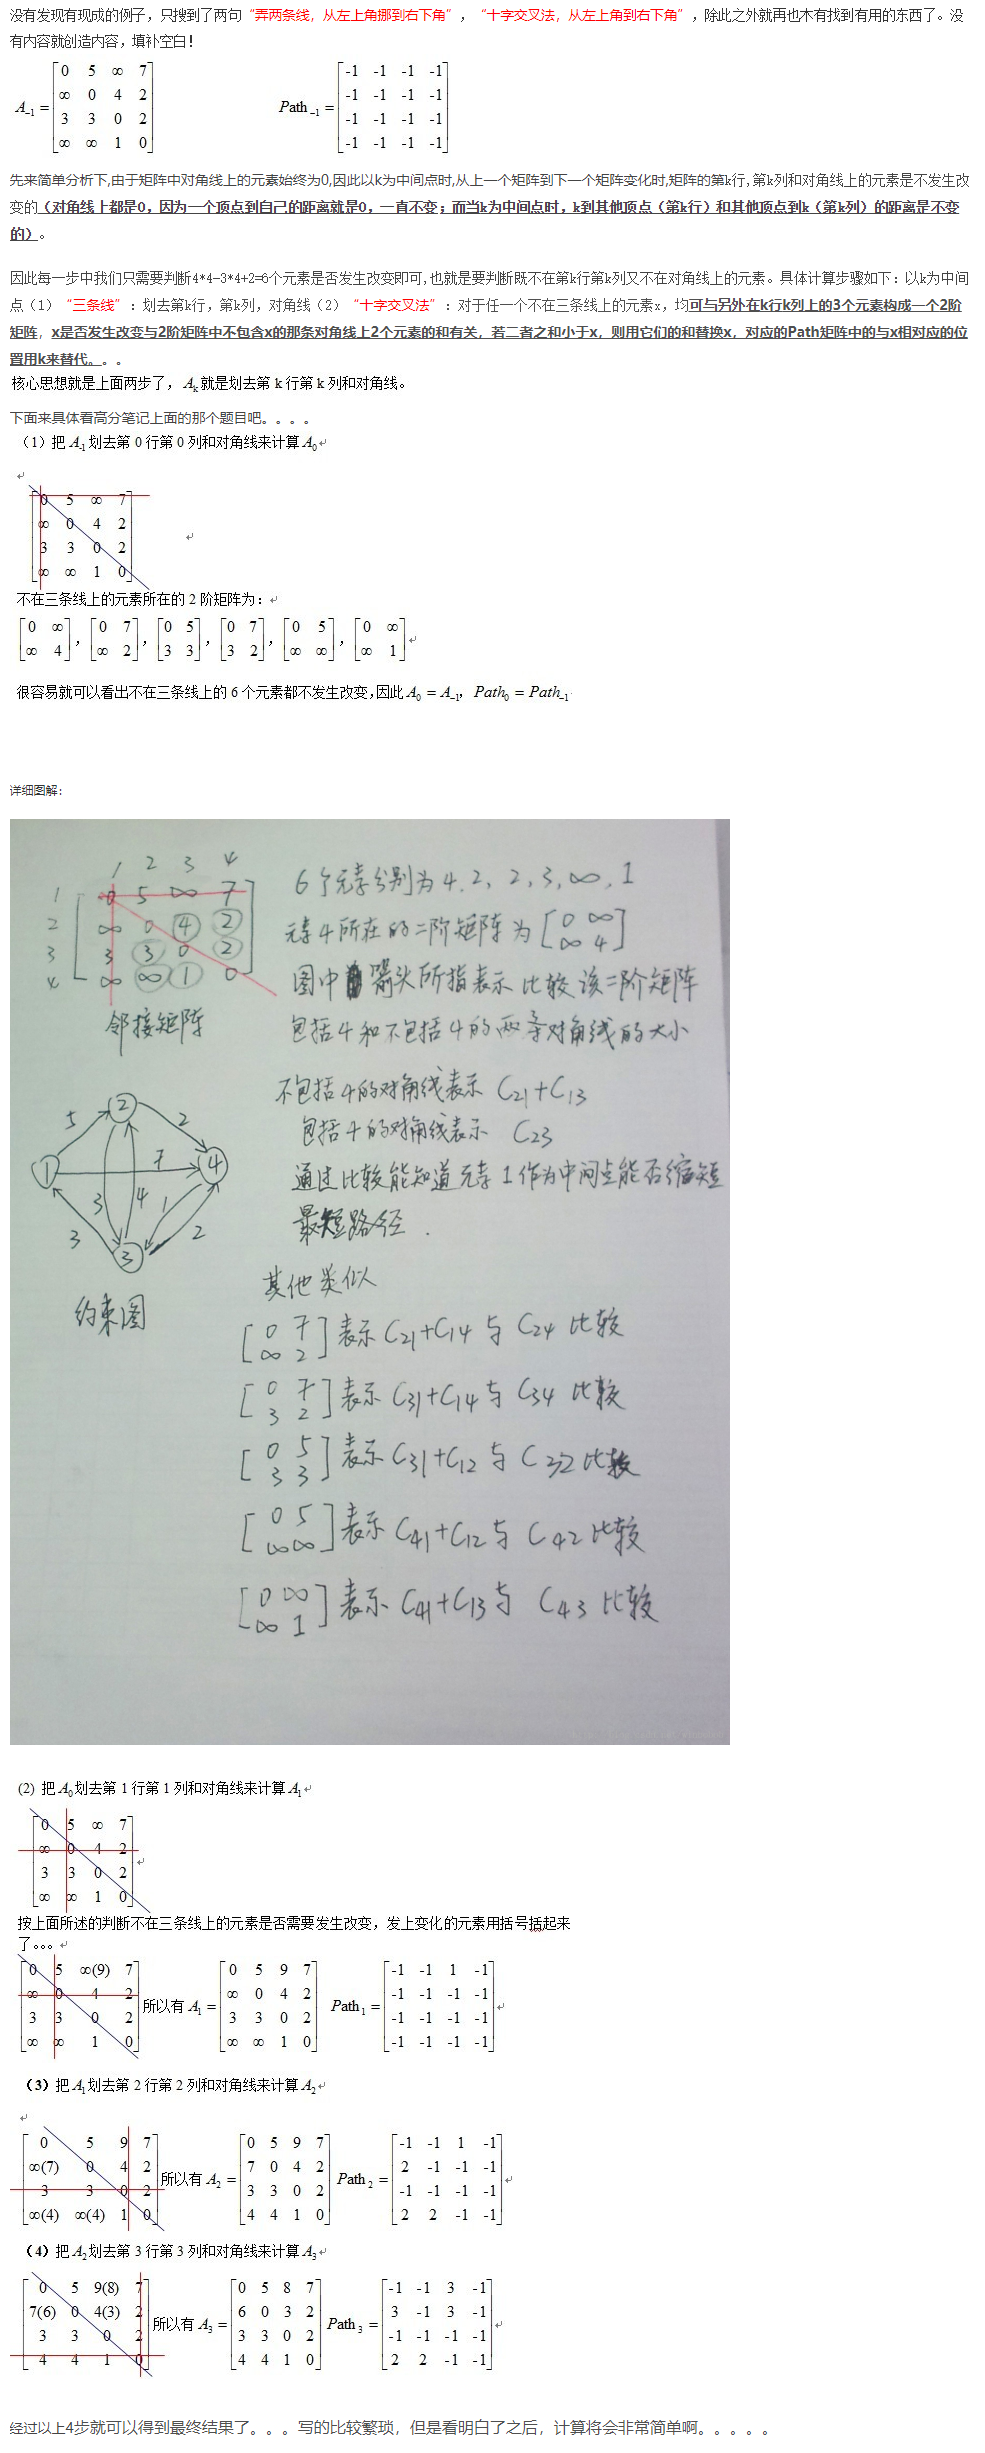 没有发现有现成的例子，只搜到了两句“弄两条线，从左上角挪到右下角”，“十字交叉法，从左上角到右下角”，除此之外就再也木有找到有用的东西了。没
有内容就创造内容，填补空白！
A₋₁ = [0 5 ∞ 7 Path₋₁ = [-1 -1 -1 -1
∞ 0 4 2 -1 -1 -1 -1
3 3 0 2 -1 -1 -1 -1
∞ ∞ 1 0] -1 -1 -1 -1]
先来简单分析下,由于矩阵中对角线上的元素始终为0,因此以k为中间点时,从上一个矩阵到下一个矩阵变化时,矩阵的第k行,第k列和对角线上的元素是不发生改
变的（对角线上都是0，因为一个顶点到自己的距离就是0，一直不变；而当k为中间点时，k到其他顶点（第k行）和其他顶点到k（第k列）的距离是不变
的）。
因此每一步中我们只需要判断4*4-3*4+2=6个元素是否发生改变即可,也就是要判断既不在第k行第k列又不在对角线上的元素。具体计算步骤如下：以k为中间
点（1）“三条线”：划去第k行，第k列，对角线（2）“十字交叉法”：对于任一个不在三条线上的元素x，均可与另外在k行k列上的3个元素构成一个2阶
矩阵，x是否发生改变与2阶矩阵中不包含x的那条对角线上2个元素的和有关，若二者之和小于x，则用它们的和替换x，对应的Path矩阵中的与x相对应的位
置用k来替代。。。
核心思想就是上面两步了，Aₖ就是划去第 k 行第 k 列和对角线。
下面来具体看高分笔记上面的那个题目吧。。。。
（1）把 A₋₁ 划去第 0 行第 0 列和对角线来计算 A₀
[0 5 ∞ 7
∞ 0 4 2
3 3 0 2
∞ ∞ 1 0]
不在三条线上的元素所在的 2 阶矩阵为：
[0 ∞ [0 7 [0 5 [0 7 [0 5 [0 ∞
∞ 4], ∞ 2], 3 3], 3 2], ∞ ∞], ∞ 1]
很容易就可以看出不在三条线上的 6 个元素都不发生改变,因此 A₀ = A₋₁, Path₀ = Path₋₁
详细图解：
1 2 3 4
1 [0 5 ∞ 7
2 ∞ 0 4 2
3 3 3 0 2
4 ∞ ∞ 1 0]
邻接矩阵
6个元素分别为 4, 2, 2, 3, ∞, 1
元素4所在的二阶矩阵为 [0 ∞
∞ 4]
图中箭头所指表示比较该二阶矩阵
包括4和不包括4的两条对角线的大小
不包括4的对角线表示 C21+C13
包括4的对角线表示 C23
通过比较能知道元素1作为中间点能否缩短
最短路径.
2
5 2
1 7 4
3 4 1
3 2
3
约束图
其他类似
[0 7
∞ 2] 表示 C21+C14 与 C24 比较
[0 7
3 2] 表示 C31+C14 与 C34 比较
[0 5
3 3] 表示 C31+C12 与 C32 比较
[0 5
∞∞] 表示 C41+C12 与 C42 比较
[0 ∞
∞ 1] 表示 C41+C13 与 C43 比较
(2) 把 A₀ 划去第 1 行第 1 列和对角线来计算 A₁
[0 5 ∞ 7
∞ 0 4 2
3 3 0 2
∞ ∞ 1 0]
按上面所述的判断不在三条线上的元素是否需要发生改变，发上变化的元素用括号括起来
了。。。
[0 5 ∞(9) 7 [0 5 9 7 [-1 -1 1 -1
∞ 0 4 2 所以有 A₁ = ∞ 0 4 2 Path₁ = -1 -1 -1 -1
3 3 0 2 3 3 0 2 -1 -1 -1 -1
∞ ∞ 1 0] ∞ ∞ 1 0] -1 -1 -1 -1]
（3）把 A₁ 划去第 2 行第 2 列和对角线来计算 A₂
[0 5 9 7 [0 5 9 7 [-1 -1 1 -1
∞(7) 0 4 2 所以有 A₂ = 7 0 4 2 Path₂ = 2 -1 -1 -1
3 3 0 2 3 3 0 2 -1 -1 -1 -1
∞(4) ∞(4) 1 0] 4 4 1 0] 2 2 -1 -1]
（4）把 A₂ 划去第 3 行第 3 列和对角线来计算 A₃
[0 5 9(8) 7 [0 5 8 7 [-1 -1 3 -1
7(6) 0 4(3) 2 所以有 A₃ = 6 0 3 2 Path₃ = 3 -1 3 -1
3 3 0 2 3 3 0 2 -1 -1 -1 -1
4 4 1 0] 4 4 1 0] 2 2 -1 -1]
经过以上4步就可以得到最终结果了。。。写的比较繁琐，但是看明白了之后，计算将会非常简单啊。。。。。